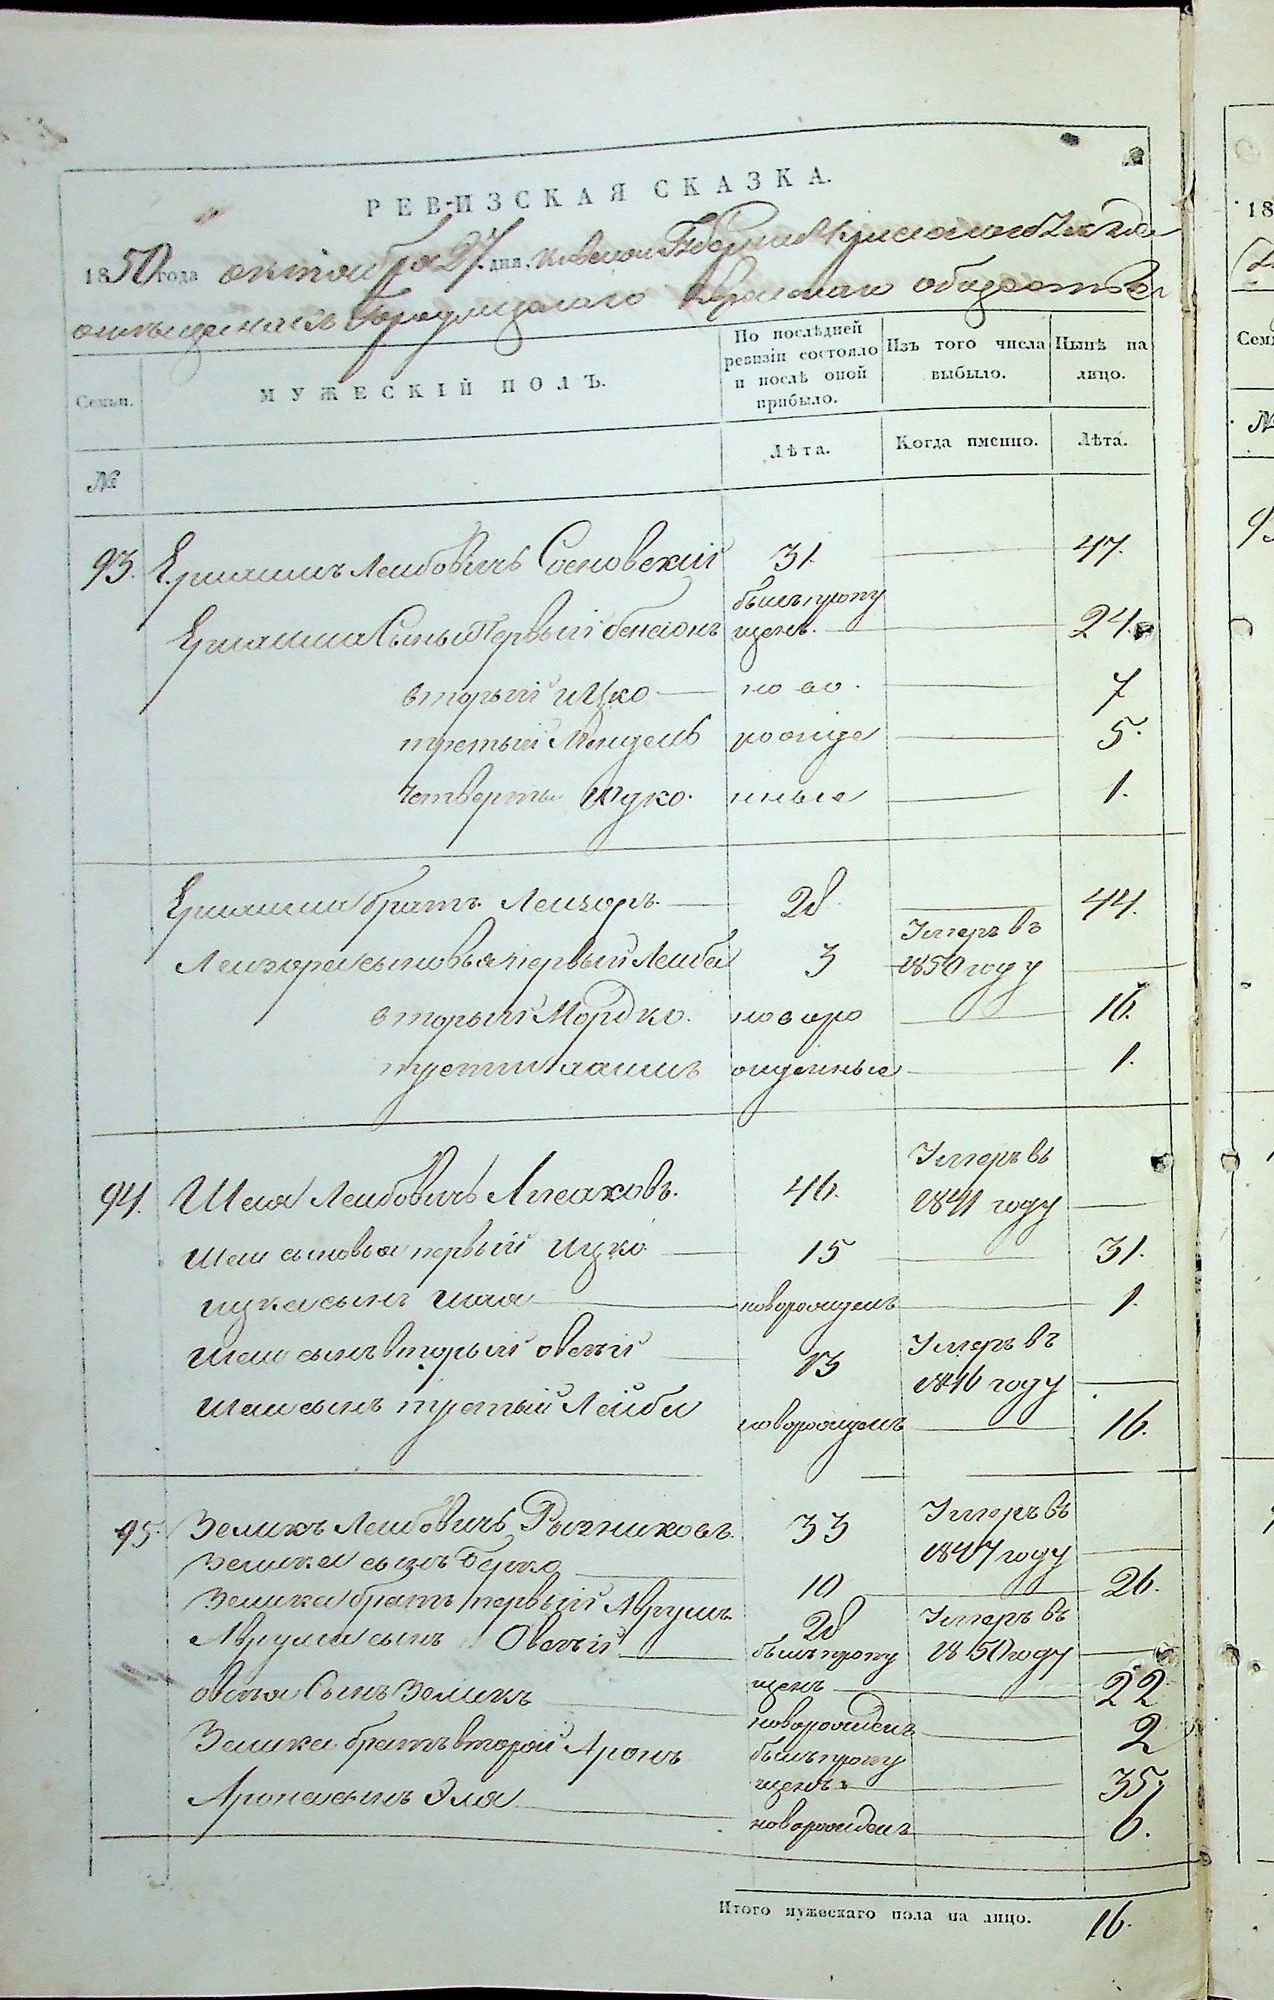 РЕВИЗСКАЯ СКАЗКА.
1850 года октября 27 дня. Киевской Губернии
Городищкаго Еврейскаго общества
Семьи.
МУЖЕСКІЙ ПОЛЪ.
По послѣдней ревизіи состояло и послѣ оной прибыло.
Изъ того числа выбыло.
Нынѣ на лицо.
№
Лѣта.
Когда именно.
Лѣта.
93. Ершишъ Лейбовичъ Сосновскій 31. 47.
Ершиша Сыны Первый Бенсіонъ былъ пропущенъ. 24.
вторый Ицко ново 7
третый Мендель рожде 5.
четверты Юдко. нные 1.
Ершиша братъ Лейзоръ 28 44.
Лейзора сыновья первый Лейба 3 Умеръ въ 1850 году
вторый Мордко. новоро 16.
третіи Хаимъ жденные 1.
94. Шая Лейбовичъ Лисаковъ. 46. Умеръ въ 1841 году
Шаи сыновья первый Ицко 15 31.
Ицка сынъ Шая новорожденъ 1.
Шаи сынъ вторый Овсѣй 13 Умеръ въ 1846 году
Шаи сынъ третый Лейба новорожденъ 16.
95. Зеликъ Лейбовичъ Рычниковъ. 33 Умеръ въ 1847 году
Зелика сынъ Берко 10 26.
Зелика братъ первый Аврумъ 28 Умеръ въ 1850 году
Аврума сынъ Овсѣй былъ пропущенъ 22
Овсѣя Сынъ Зеликъ новорожденъ 2
Зелика братъ второй Аронъ былъ пропущенъ 35.
Арона сынъ Эля новорожденъ 6.
Итого мужескаго пола на лицо. 16.
18
Семь
№